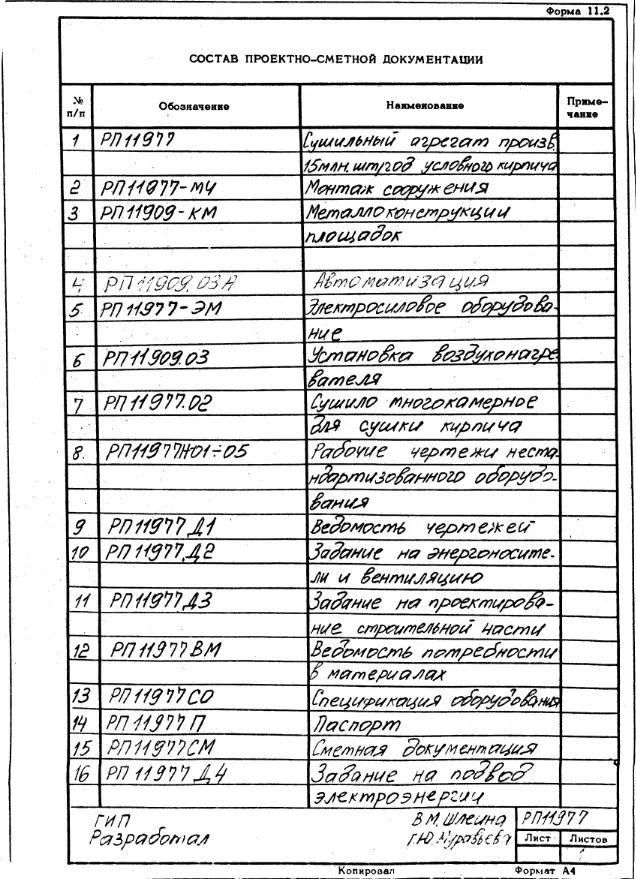 Форма 11.2
СОСТАВ ПРОЕКТНО-СМЕТНОЙ ДОКУМЕНТАЦИИ
№ п/п Обозначение Наименование Приме-
чание
1 РП11977 Сушильный агрегат произв.
15млн. шт/год условного кирпича
2 РП11977-МЧ Монтаж сооружения
3 РП11909-КМ Металлоконструкции
площадок
4 РП11909.03А Автоматизация
5. РП11977-ЭМ Электросиловое оборудова-
ние
6 РП11909.03 Установка воздухонагре-
вателя
7 РП11977.02 Сушило многокамерное
для сушки кирпича
8. РП11977Н01÷05 Рабочие чертежи неста
ндартизованного оборудо-
вания
9 РП11977Д1 Ведомость чертежей
10 РП11977Д2 Задание на энергоносите-
ли и вентиляцию
11 РП11977Д3 Задание на проектирова-
ние строительной части
12 РП11977ВМ Ведомость потребности
в материалах
13 РП11977СО Спецификация оборудования
14 РП11977П Паспорт
15 РП11977СМ Сметная документация
16 РП11977Д4 Задание на подвод
электроэнергии
ГИП В.М.Шлеина РП11977
Разработал Г.Ю.Муравьёва Лист Листов
1
Копировал Формат А4